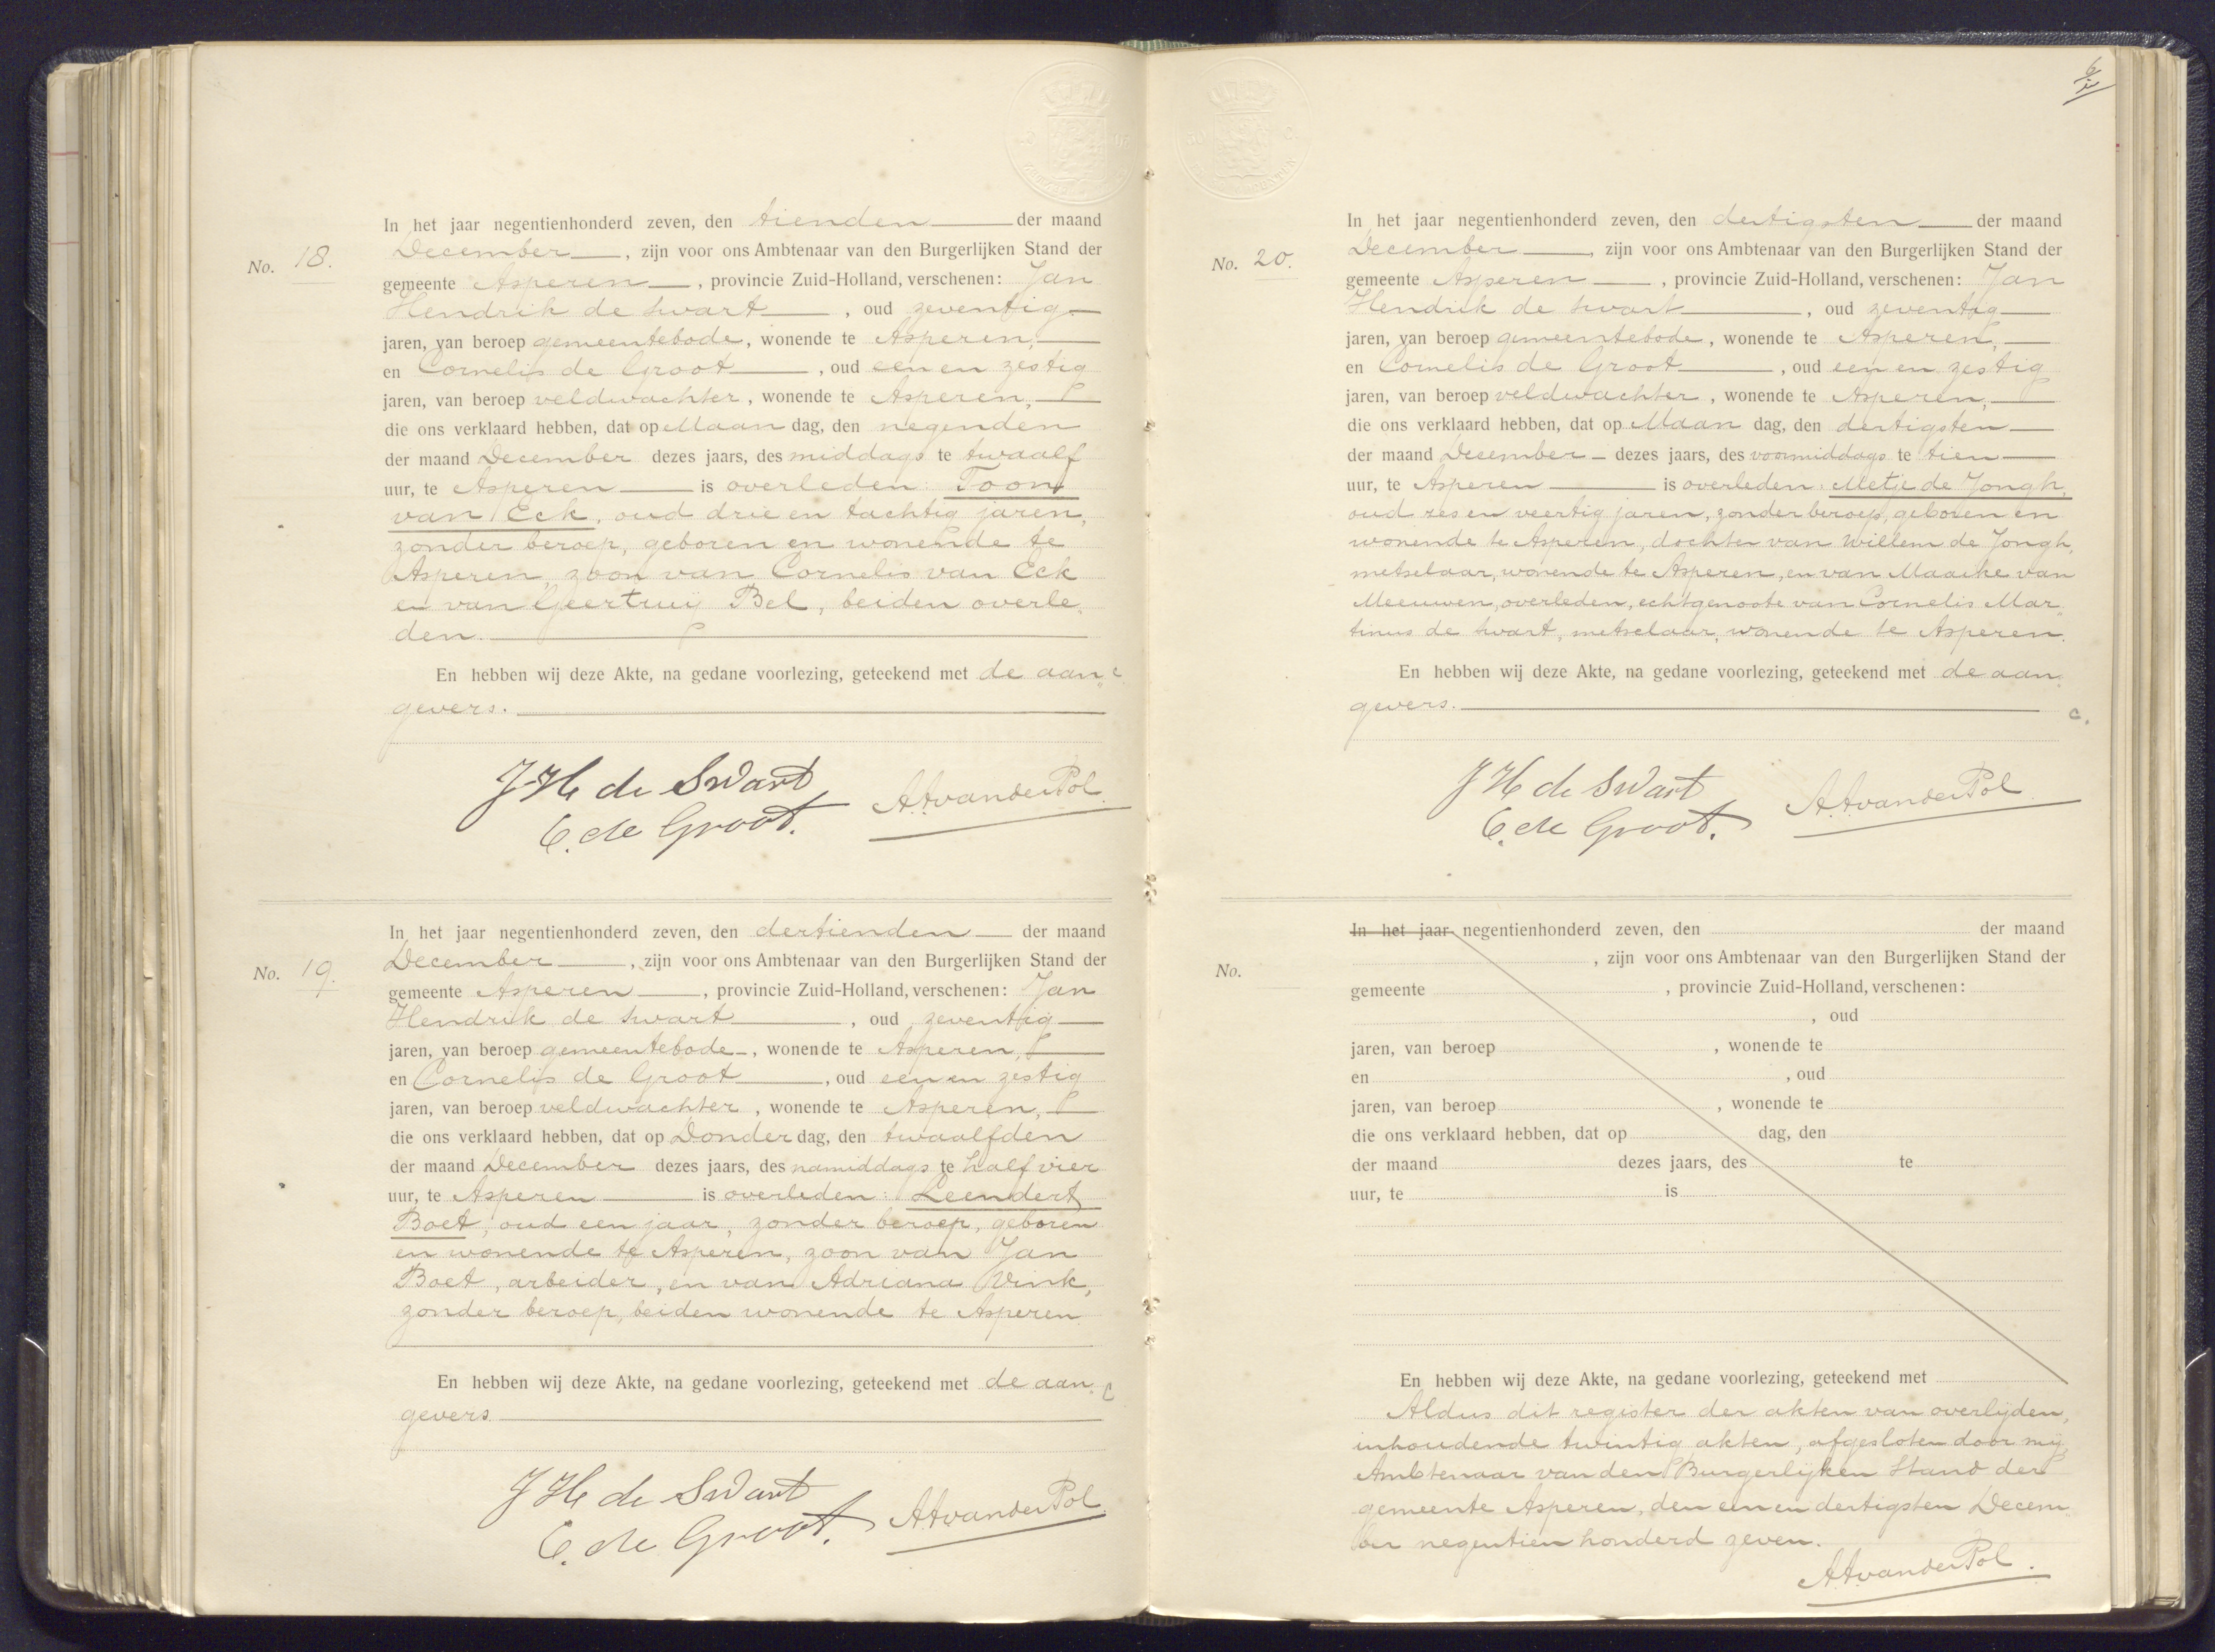 In het jaar negentienhonderd zeven, den tienden der maand
No. 18. December, zijn voor ons Ambtenaar van den Burgerlijken Stand der
gemeente Asperen, provincie Zuid-Holland, verschenen: Jan
Hendrik de Swart, oud zeventig
jaren, van beroep gemeentebode, wonende te Asperen,
en Cornelis de Groot, oud een en zestig
jaren, van beroep veldwachter, wonende te Asperen,
die ons verklaard hebben, dat op Maandag, den negenden
der maand December dezes jaars, des middags te twaalf
uur, te Asperen is overleden: Toon
van Eck, oud drie en tachtig jaren,
zonder beroep, geboren en wonende te
Asperen, zoon van Cornelis van Eck
en van Geertruij Bel, beiden overle„
den.
En hebben wij deze Akte, na gedane voorlezing, geteekend met de aan„
gevers.
J H de Swart
C. de Groot. A.A. van der Pol.
In het jaar negentienhonderd zeven, den dertienden der maand
No. 19. December, zijn voor ons Ambtenaar van den Burgerlijken Stand der
gemeente Asperen, provincie Zuid-Holland, verschenen: Jan
Hendrik de Swart, oud zeventig
jaren, van beroep gemeentebode, wonende te Asperen,
en Cornelis de Groot, oud een en zestig
jaren, van beroep veldwachter, wonende te Asperen,
die ons verklaard hebben, dat op Donderdag, den twaalfden
der maand December dezes jaars, des namiddags te half vier
uur, te Asperen is overleden: Leendert
Boet, oud een jaar, zonder beroep, geboren
en wonende te Asperen, zoon van Jan
Boet, arbeider, en van Adriana Vink,
zonder beroep, beiden wonende te Asperen
En hebben wij deze Akte, na gedane voorlezing, geteekend met de aan„
gevers.
J H de Swart
C. de Groot. A.A. van der Pol.
In het jaar negentienhonderd zeven, den dertigsten der maand
No. 20. December, zijn voor ons Ambtenaar van den Burgerlijken Stand der
gemeente Asperen, provincie Zuid-Holland, verschenen: Jan
Hendrik de Swart, oud zeventig
jaren, van beroep gemeentebode, wonende te Asperen,
en Cornelis de Groot, oud een en zestig
jaren, van beroep veldwachter, wonende te Asperen,
die ons verklaard hebben, dat op Maandag, den dertigsten
der maand December dezes jaars, des voormiddags te tien
uur, te Asperen is overleden: Metje de Jongh,
oud zes en veertig jaren, zonder beroep, geboren en
wonende te Asperen, dochter van Willem de Jongh,
metselaar, wonende te Asperen, en van Maaike van
Meeuwen, overleden, echtgenoote van Cornelis Mar„
tinus de Swart, metselaar, wonende te Asperen.
En hebben wij deze Akte, na gedane voorlezing, geteekend met de aan„
gevers.
J H de Swart
C. de Groot. A.A. van der Pol.
In het jaar negentienhonderd zeven, den der maand
No. , zijn voor ons Ambtenaar van den Burgerlijken Stand der
gemeente , provincie Zuid-Holland, verschenen:
, oud
jaren, van beroep , wonende te
en , oud
jaren, van beroep , wonende te
die ons verklaard hebben, dat op dag, den
der maand dezes jaars, des te
uur, te is
En hebben wij deze Akte, na gedane voorlezing, geteekend met
Aldus dit register der akten van overlijden,
inhoudende twintig akten, afgesloten door mij,
Ambtenaar van den Burgerlijken Stand der
gemeente Asperen, den een en dertigsten Decem„
ber negentien honderd zeven.
A.A. van der Pol.